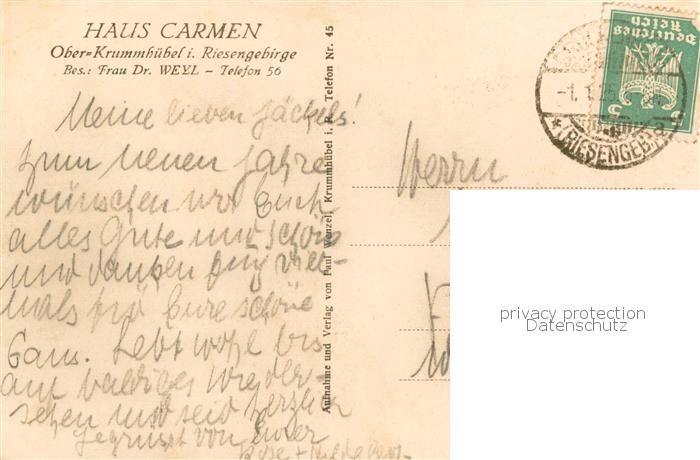 HAUS CARMEN
Ober=Krummhübel i. Riesengebirge
Bes.: Frau Dr. WEYL – Telefon 56
Meine lieben Jäckels!
zum neuen Jahre
wünschen wir Euch
alles Gute und Schöne
und danken Euch viel-
mals für Eure schöne
Gans. Lebt wohl bis
auf baldiges Wieder-
sehen und seid herzlich
gegrüsst von Eurer
Aufnahme und Verlag von Paul Wenzel, Krummhübel i. R. Telefon Nr. 45
Herrn
Deutsches
Reich
-1.1.25
(RIESENGEB.)
privacy protection
Datenschutz